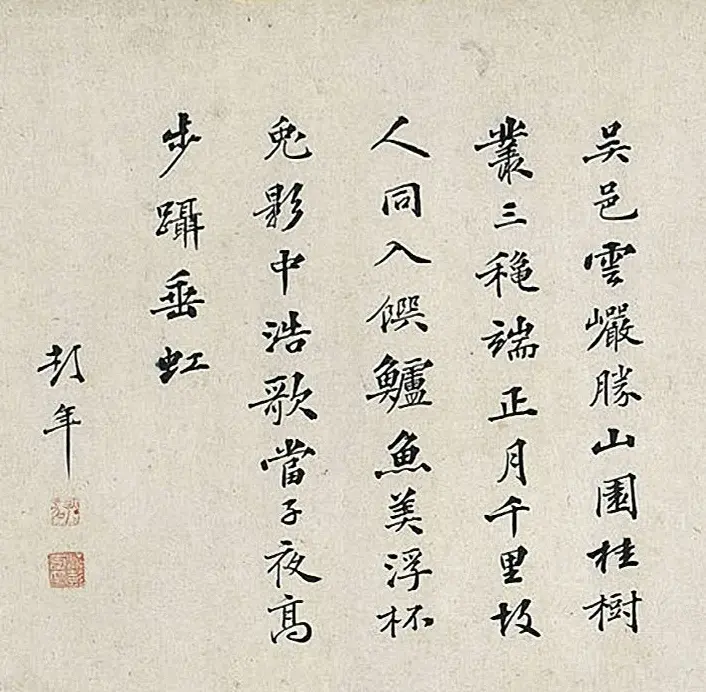 吳邑雲巖勝山圍桂樹
叢三穐端正月千里故
人同入饌鱸魚美浮杯
兔影中浩歌當子夜高
步躡垂虹
彭年